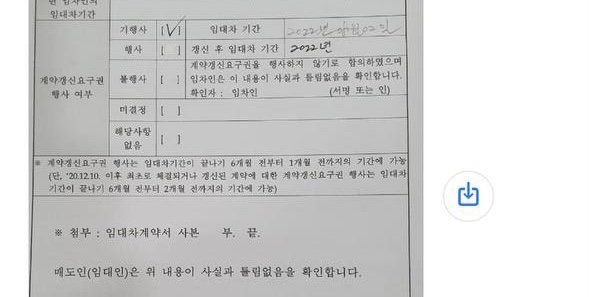 현 임차인의
임대차기간
계약갱신요구권
행사 여부
기행사 [√] 임대차 기간 2022년
행사 [ ] 갱신 후 임대차 기간 2022년
불행사 [ ] 계약갱신요구권을 행사하지 않기로 합의하였으며
임차인은 이 내용이 사실과 틀림없음을 확인합니다.
확인자 : 임차인 (서명 또는 인)
미결정 [ ]
해당사항
없음 [ ]
※ 계약갱신요구권 행사는 임대차기간이 끝나기 6개월 전부터 1개월 전까지의 기간에 가능
(단, '20.12.10. 이후 최초로 체결되거나 갱신된 계약에 대한 계약갱신요구권 행사는 임대차
기간이 끝나기 6개월 전부터 2개월 전까지의 기간에 가능)
※ 첨부 : 임대차계약서 사본 부. 끝.
매도인(임대인)은 위 내용이 사실과 틀림없음을 확인합니다.